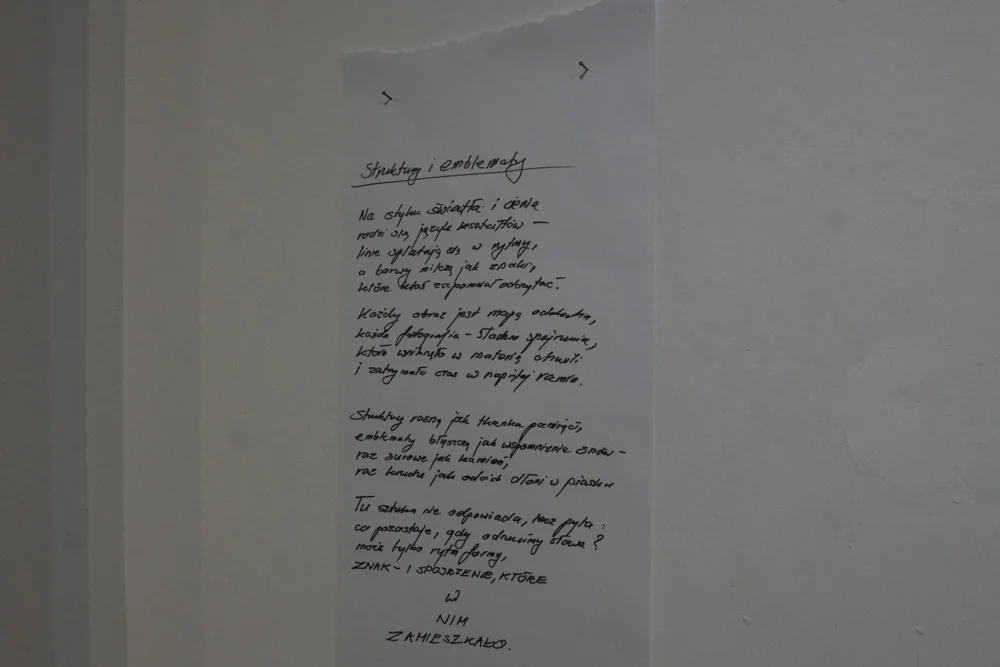 Struktury i emblematy
Na styku światła i cienia
rodzi się język kształtów —
linie splatają się w rytmy,
a barwy milczą jak znaki,
które ktoś zapomniał odczytać.
Każdy obraz jest mapą oddechu,
każda fotografia – śladem spojrzenia,
które wniknęło w materię chwili
i zatrzymało czas w napiętej ramie.
Struktury rosną jak tkanka pamięci,
emblematy błyszczą jak wspomnienie snów –
raz surowe jak kamień,
raz kruche jak odcisk dłoni w piasku
Tu sztuka nie odpowiada, lecz pyta:
co pozostaje, gdy odrzucimy słowa?
może tylko rytm formy,
ZNAK – I SPOJRZENIE, KTÓRE
W
NIM
ZAMIESZKAŁO.